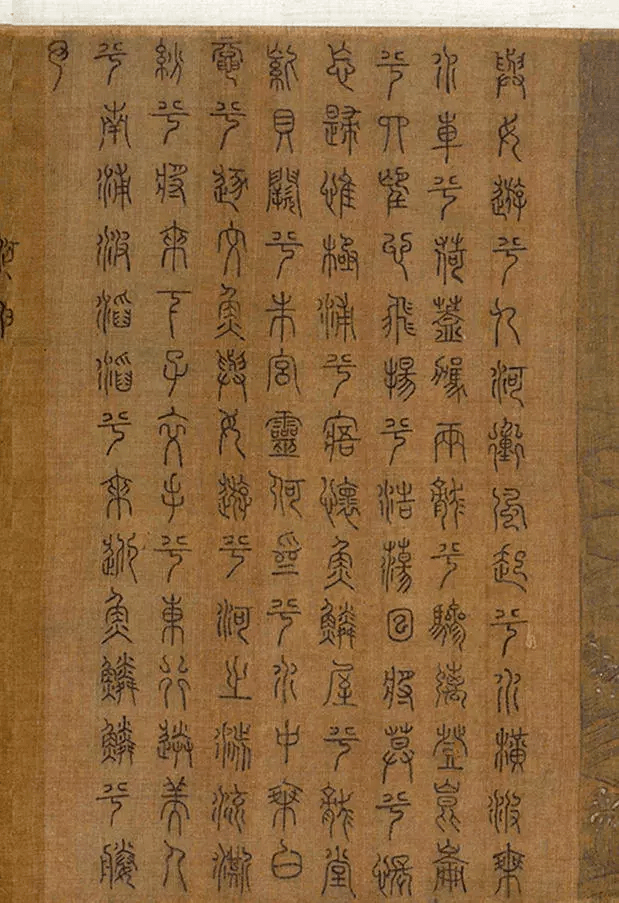 與女遊兮九河衝風起兮水橫波乘
水車兮荷蓋駕兩龍兮驂螭登崑崙
兮四望心飛揚兮浩蕩日將暮兮悵
忘歸惟極浦兮寤懷魚鱗屋兮龍堂
紫貝闕兮朱宮靈何為兮水中乘白
黿兮逐文魚與女遊兮河之渚流澌
紛兮將來下子交手兮東行送美人
兮南浦波滔滔兮來迎魚鱗鱗兮媵
予
河伯